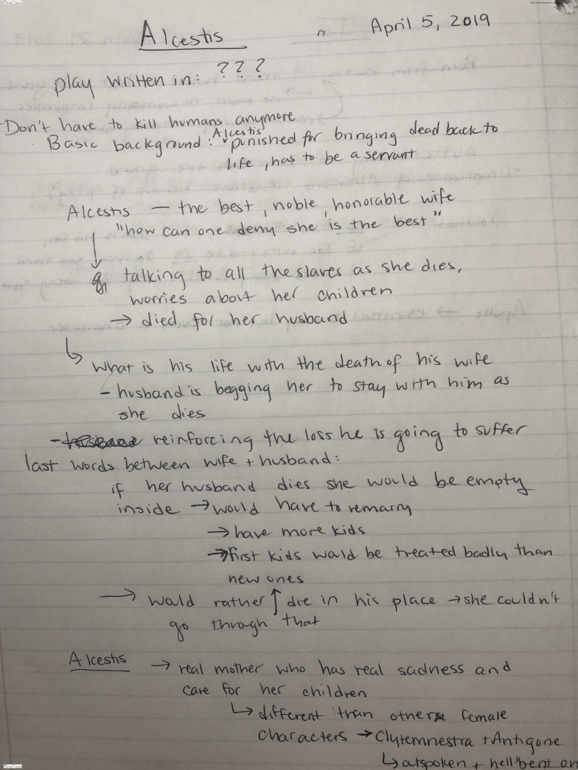 Alcestis
April 5, 2019
play written in: ???
Don't have to kill humans anymore
Basic background: Alcestis punished for bringing dead back to
life, has to be a servant
Alcestis — the best, noble, honorable wife
"how can one deny she is the best"
↓
talking to all the slaves as she dies,
worries about her children
→ died for her husband
↳ What is his life with the death of his wife
- husband is begging her to stay with him as
she dies
- reinforcing the loss he is going to suffer
last words between wife + husband:
if her husband dies she would be empty
inside → would have to remarry
→ have more kids
→ first kids would be treated badly than
new ones
→ would rather ↑ die in his place → she couldn't
go through that
Alcestis → real mother who has real sadness and
care for her children
↳ different than other female
characters → Clytemnestra + Antigone
↳ outspoken + hell bent on